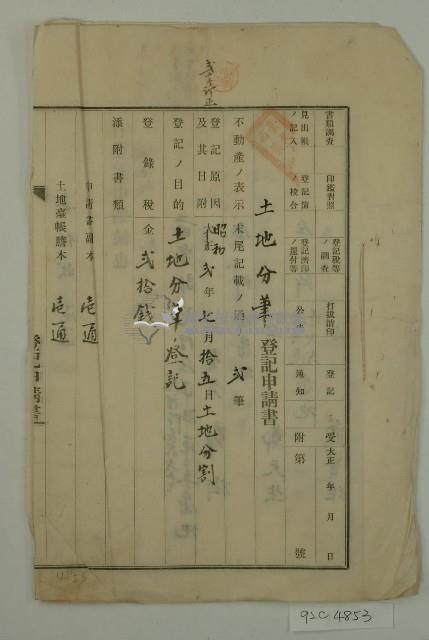 弐字訂正
書類調査
印鑑對照
登記税等ノ調査
打拔消印
登記
受大正 年 月 日
見出帳ノ記入
登記簿ノ校合
登記濟印ノ還付等
公
通知
附第 號
土地分筆登記申請書
不動產ノ表示 末尾記載ノ通 弐筆
登記原因及其日附 昭和弐年七月拾五日土地分割
登記ノ目的 土地分筆ノ登記
登錄税金弐拾錢
添附書類
申請書副本 壱通
土地臺帳謄本 壱通
登記申請書
92C 4853